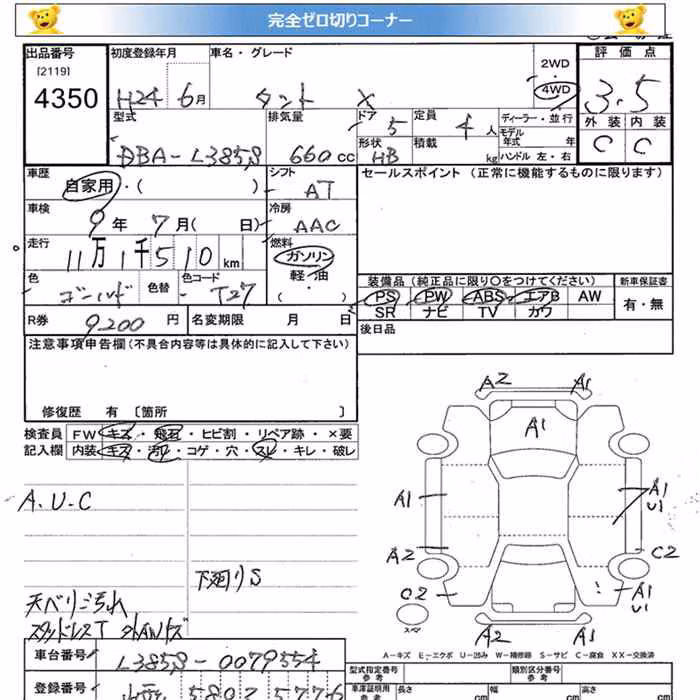 完全ゼロ切りコーナー
出品番号 初度登録年月 車名・グレード 2WD 評価点
[2119]
4350 H24 6月 タント X 4WD 3.5
型式 排気量 ドア 5 定員 4人 ディーラー・並行 外装 内装
モデル年式 年
DBA-L385S 660cc 形状 HB 積載 kg ハンドル 左・右 C C
車歴 シフト セールスポイント (正常に機能するものに限ります)
自家用・( ) AT
車検 冷房
9年 7月( 日) AAC
走行 燃料
11万1千510km ガソリン
色 色替 色コード 軽・油 装備品 (純正品に限り○をつけてください) 新車保証書
ゴールド T27 ( ・ ) PS PW ABS エアB AW 有・無
SR ナビ TV カワ
R券 9200円 名変期限 月 日 後日品
注意事項申告欄(不具合内容等は具体的に記入して下さい)
修復歴 有 [箇所 ]
検査員 FW キズ・飛石・ヒビ割・リペア跡・×要
記入欄 内装 キズ・汚れ・コゲ・穴・スレ・キレ・破レ
A2 A1
A1
A.U.C
A1 A1
U1
A2 C2
下廻りS
C2 A1
U1
天ベリ汚れ
スペア
スタッドレスT
A2 A1
A-キズ E-エクボ U-凹み W-補修跡 S-サビ C-腐食 XX-交換済
車台番号 L385S-0079554
型式指定番号 参考 類別区分番号 参考
登録番号 580 5776
車庫証明用 参考 長さ cm 幅 cm 高さ cm